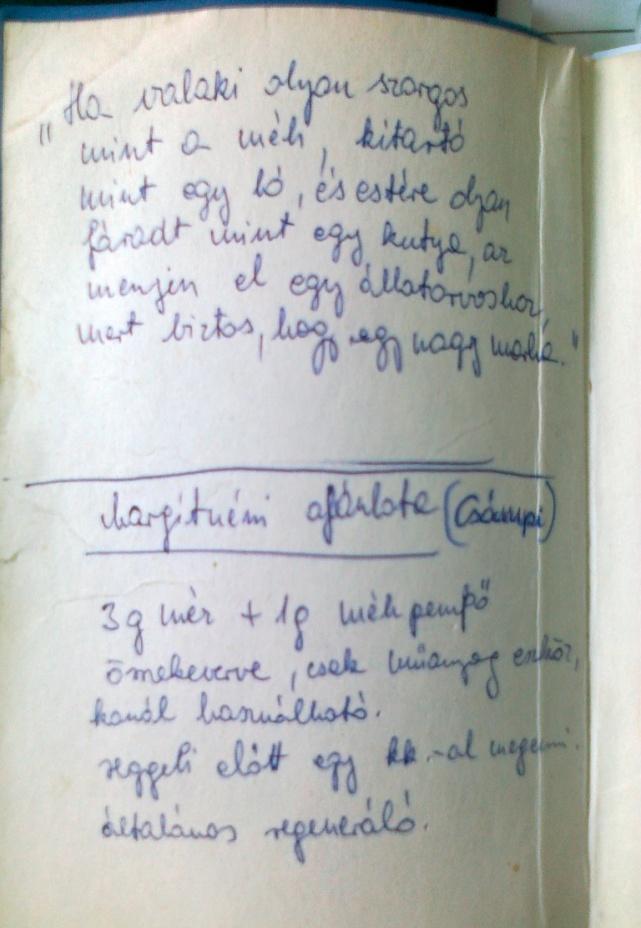 „Ha valaki olyan szorgos
mint a méh, kitartó
mint egy ló, és estére olyan
fáradt mint egy kutya, az
menjen el egy állatorvoshoz,
mert biztos, hogy egy nagy marha."
Margitnéni ajánlota (Csámpi)
3g méz + 1g méh pempő
összekeverve, csak műanyag eszköz,
kanál használható.
reggeli előtt egy kk.-al megenni.
általános regeneráló.